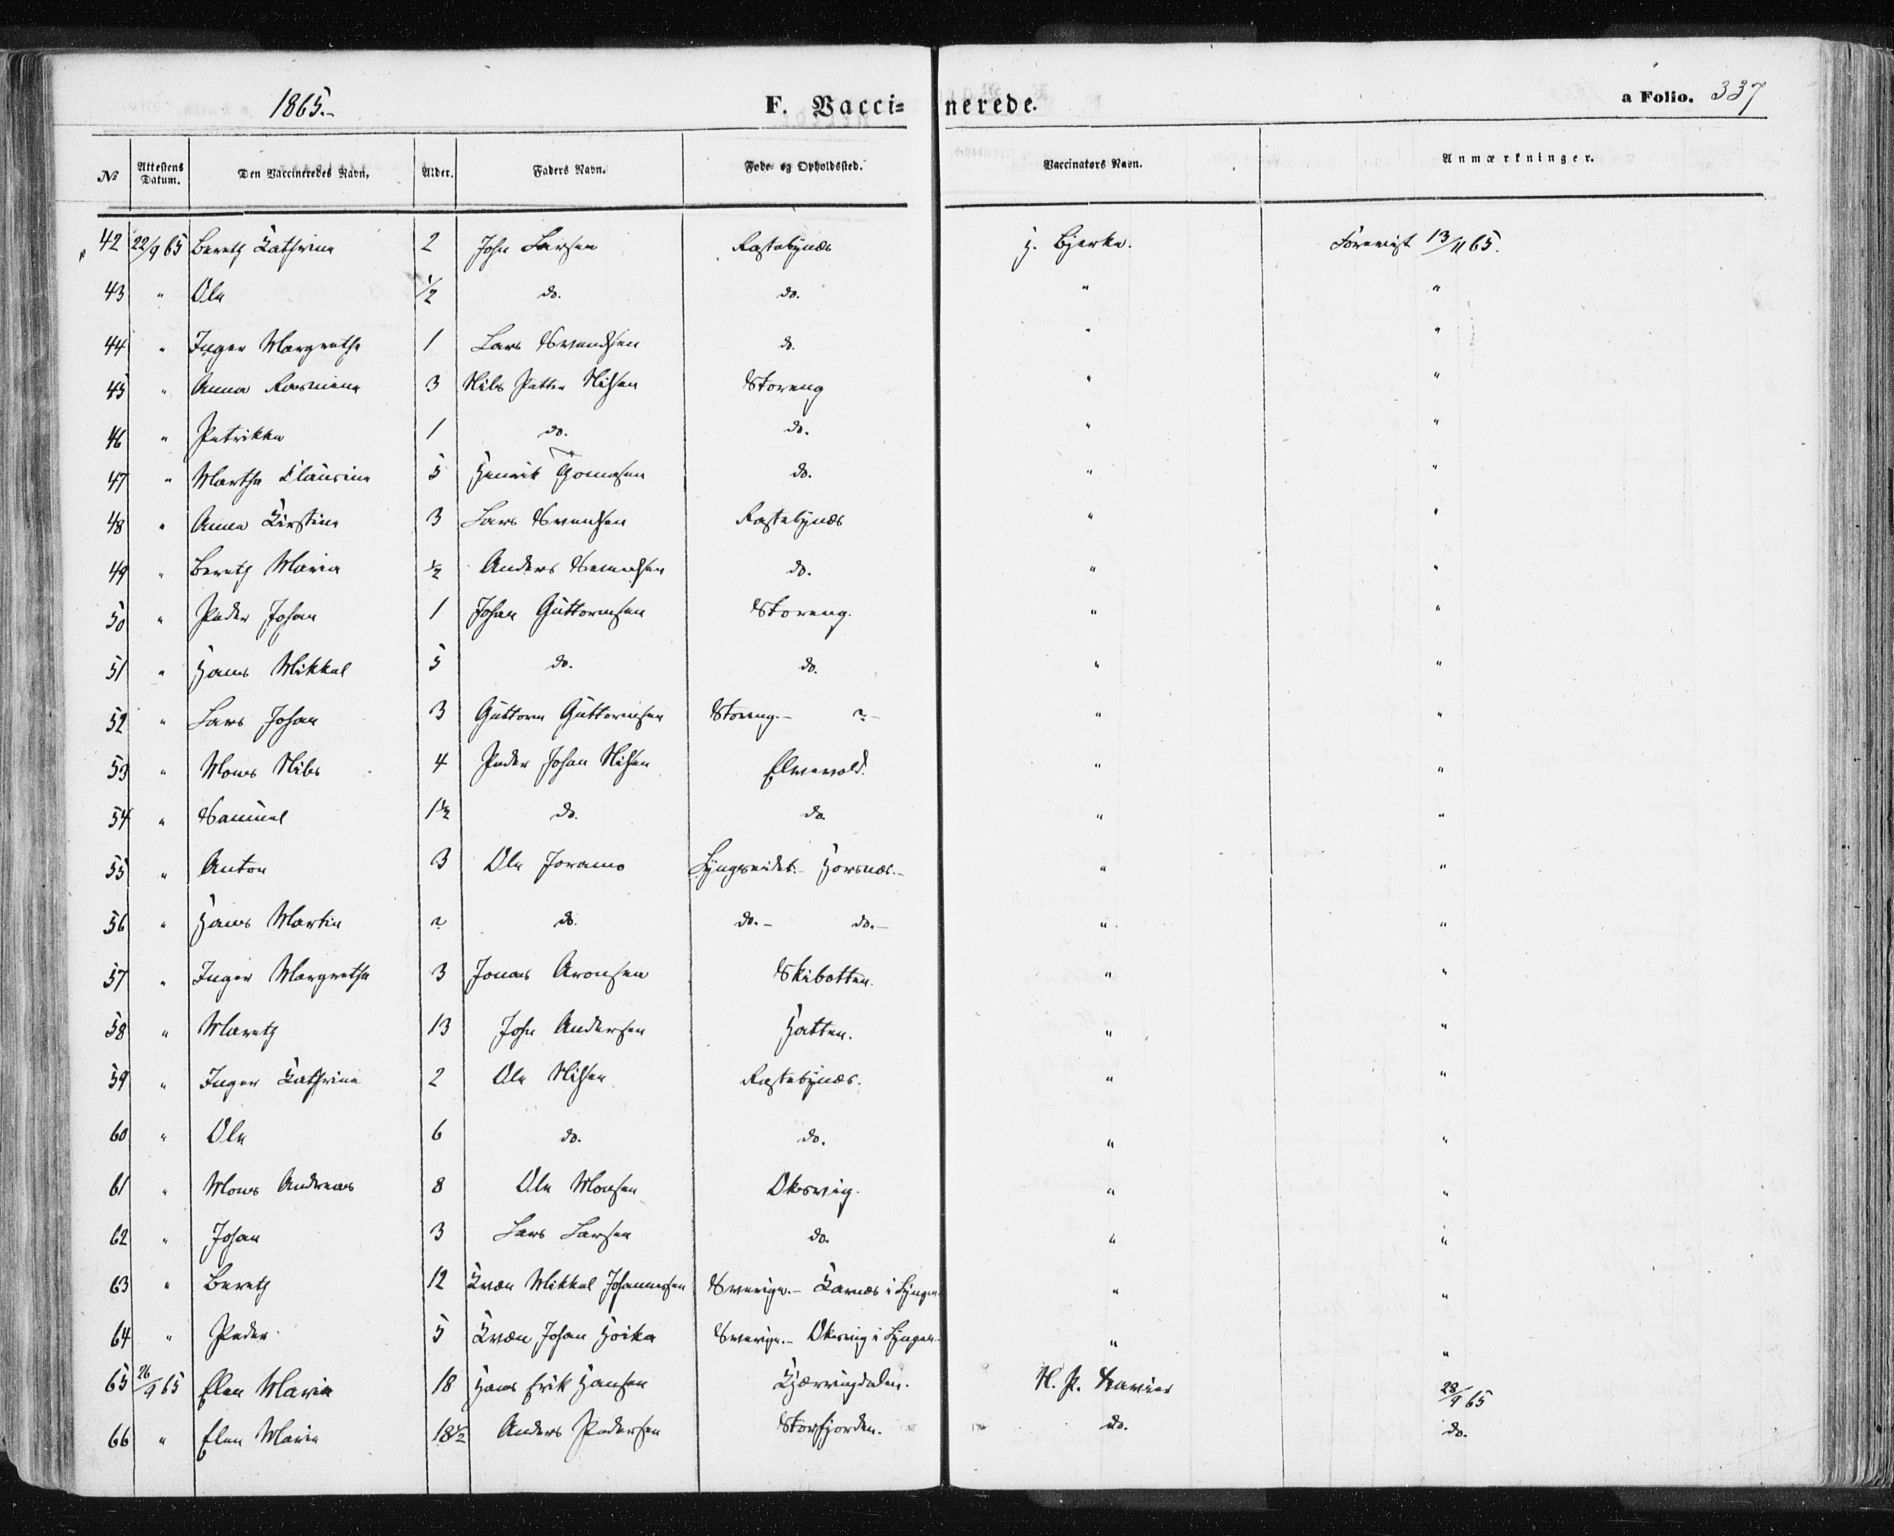 1865.- F. Vacci= nerede. a Folio. 337
No Attestens Datum. Den Vaccineredes Navn. Alder. Faders Navn. Føde- og Opholdssted. Vaccinators Navn. Anmærkninger.
42 22/9 65 Bereth Cathrine 2 John Larsen Rastebynæs J. Bjerke. Foreviist 13/11 65.
43 " Ole 1/2 do. do. " "
44 " Inger Margrethe 1 Lars Svendsen do. " "
45 " Anna Rasmine 3 Nils Petter Nilsen Storeng " "
46 " Petrikke 1 do. do. " "
47 " Marthe Clausine 5 Henrik Thomassen do. " "
48 " Anne Kirstine 3 Lars Svendsen Rastebynæs " "
49 " Bereth Maria 1/2 Anders Svendsen do. " "
50 " Peder Johan 1 Johan Guttormsen Storeng. " "
51 " Hans Mikkel 5 do. do. " "
52 " Lars Johan 3 Guttorm Guttormsen Storeng.- ?- " "
53 " Mons Nils 4 Peder Johan Nilsen Elvevold. " "
54 " Samuel 1 1/2 do. do. " "
55 " Anton 3 Ole Joramo Lyngseidet.- Horsnæs.- " "
56 " Hans Martin ? do. do.- do.- " "
57 " Inger Margrethe 3 Jonas Aronsen Skibotten. " "
58 " Mareth 13 John Andersen Hatten. " "
59 " Inger Cathrine 2 Ole Nilsen Rastebynæs. " "
60 " Ole 6 do. do. " "
61 " Mons Andreas 8 Ole Monsen Oksvig. " "
62 " Johan 3 Lars Larsen do. " "
63 " Bereth 12 Kvæn Mikkel Johannessen Sverige.- Karnæs i Lyngen " "
64 " Peder 5 Kvæn Johan Hoika Sverige.- Oksvig i Lyngen. " "
65 26/9 65 Elen Maria 18 Hans Erik Hansen Kjærringdalen. H. P. Xavier 28/9 65
66 " Elen Marie 18 1/2 Anders Pedersen Storfjorden. do. do.